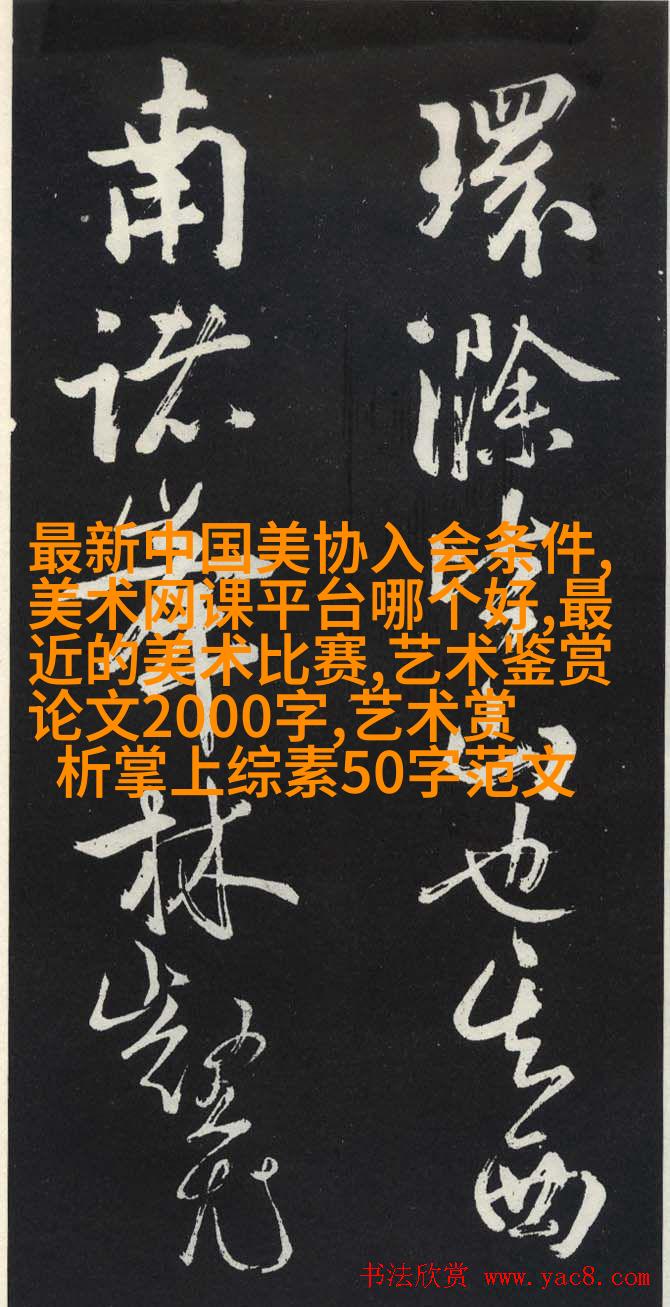 環滁皆山也其西
南諸峯林壑尤
最新中国美协入会条件,
美术网课平台哪个好,最
近的美术比赛,艺术鉴赏
论文2000字,艺术赏
析掌上综素50字范文
书法欣赏 www.yac8.com